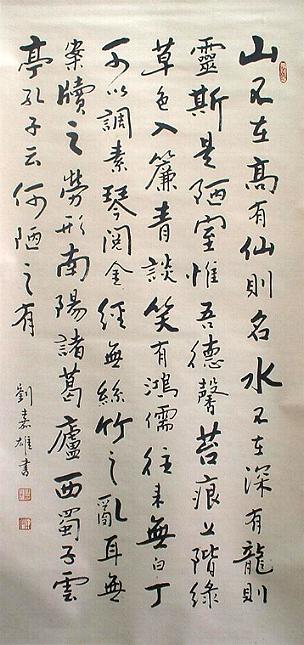 山不在高有仙則名水不在深有龍則
靈斯是陋室惟吾德馨苔痕上階綠
草色入簾青談笑有鴻儒往來無白丁
可以調素琴閱金經無絲竹之亂耳無
案牘之勞形南陽諸葛廬西蜀子雲
亭孔子云何陋之有
劉嘉雄書